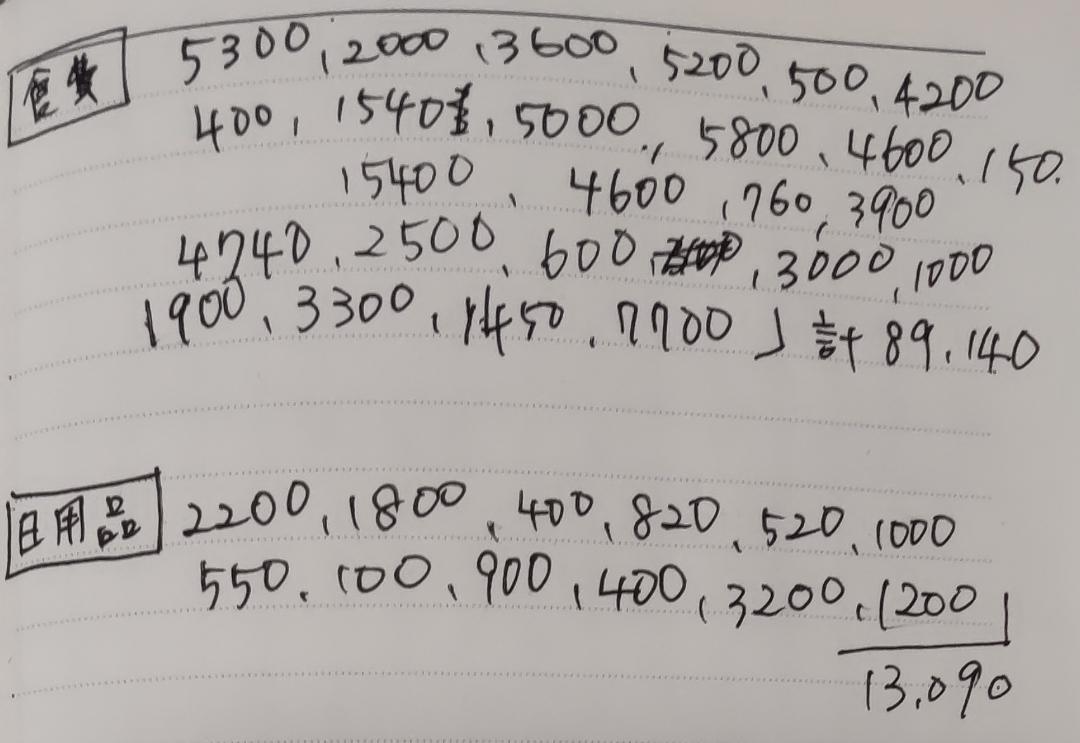 食費 5300、2000、3600、5200、500、4200
400、1540、5000、5800、4600、150.
15400、4600、760、3900
4740、2500、600、3000、1000
1900、3300、1450、7700 」計 89,140
日用品 2200、1800、400、820、520、1000
550、100、900、400、3200、1200 」
13,090